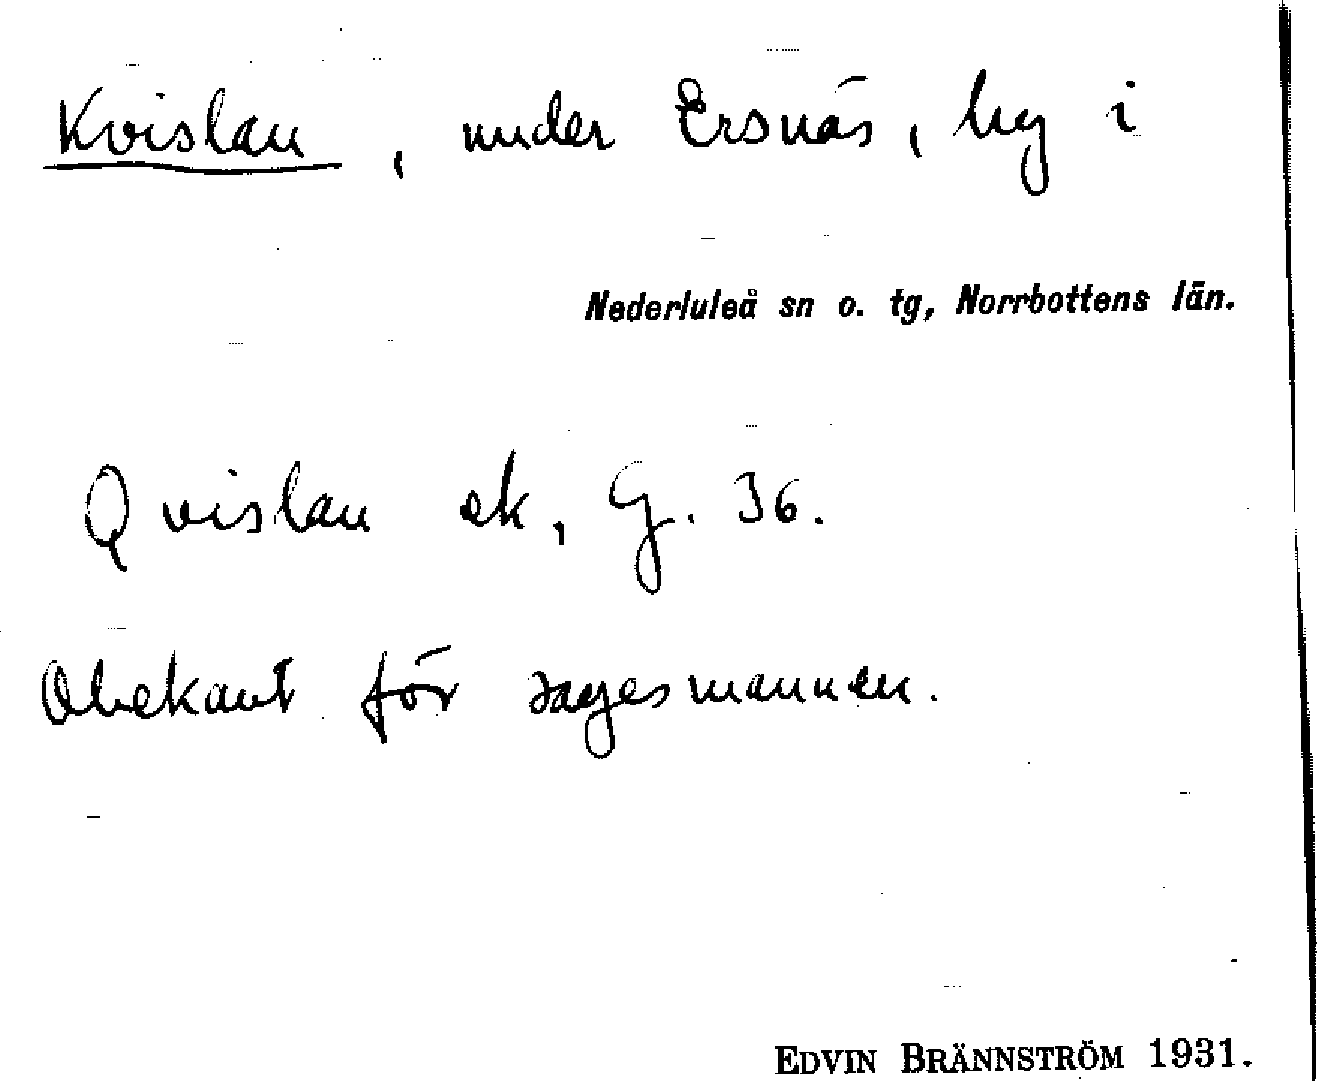 Kvislan, under Ersnäs, by i
Nederluleå sn o. tg, Norrbottens län.
Qvislan ek, G. 36.
Obekant för sagesmannen.
EDVIN BRÄNNSTRÖM 1931.